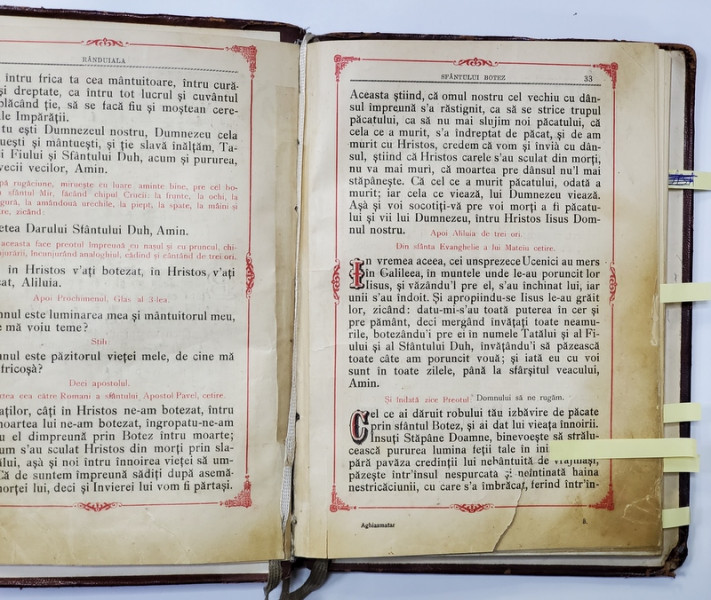 RÂNDUIALA
întru frica ta cea mântuitoare, întru cură-
și dreptate, ca întru tot lucrul și cuvântul
plăcând ție, să se facă fiu și moștean cere-
Împărății.
tu ești Dumnezeul nostru, Dumnezeu cela
mântuești, și ție slavă înălțăm, Ta-
Fiului și Sfântului Duh, acum și pururea,
vecii vecilor, Amin.
rugăciune, mirueşte cu luare aminte bine, pre cel bo-
sfântul Mir, făcând chipul Crucii: la frunte, la ochi, la
la amândouă urechile, la piept, la spate, la mâini și
zicând:
Darului Sfântului Duh, Amin.
aceasta face preotul împreună cu nașul și cu pruncul, chi-
înconjurând analoghiul, cădind și cântând de trei ori.
în Hristos v'ați botezat, în Hristos v'ați
Aliluia.
Apoi Prochimenul, Glas al 3-lea:
este luminarea mea și mântuitorul meu,
mă voiu teme?
Stih:
este păzitorul vieței mele, de cine mă
Deci apostolul.
cea către Romani a sfântului Apostol Pavel, cetire.
câți în Hristos ne-am botezat, întru
moartea lui ne-am botezat, îngropatu-ne-am
el dimpreună prin Botez întru moarte;
s'au sculat Hristos din morți prin sla-
așà și noi întru înnoirea vieței să um-
de suntem împreună sădiți după asemă-
morței lui, deci și Învierei lui vom fi părtași.
SFÂNTULUI BOTEZ 33
Aceasta știind, că omul nostru cel vechiu cu dân-
sul împreună s'a răstignit, ca să se strice trupul
păcatului, ca să nu mai slujim noi păcatului, că
cela ce a murit, s'a îndreptat de păcat, și de am
murit cu Hristos, credem că vom și învià cu dân-
sul, știind că Hristos carele s'au sculat din morți,
nu va mai muri, că moartea pre dânsul nu'l mai
stăpânește. Că cel ce a murit păcatului, odată a
murit; iar cela ce viează, lui Dumnezeu viează.
Așà și voi socotiți-vă pre voi morți a fi păcatu-
lui și vii lui Dumnezeu, întru Hristos Iisus Dom-
nul nostru.
Apoi Aliluia de trei ori.
Din sfânta Evanghelie a lui Mateiu cetire.
In vremea aceea, cei unsprezece Ucenici au mers
în Galileea, în muntele unde le-au poruncit lor
Iisus, și văzându'l pre el, s'au închinat lui, iar
unii s'au îndoit. Și apropiindu-se Iisus le-au grăit
lor, zicând: datu-mi-s'au toată puterea în cer și
pre pământ, deci mergând învățați toate neamu-
rile, botezându'i pre ei în numele Tatălui și al Fi-
ului și al Sfântului Duh, învățându'i să păzească
toate câte am poruncit vouă; și iată eu cu voi
sunt în toate zilele, până la sfârșitul veacului,
Amin.
Și îndată zice Preotul: Domnului să ne rugăm.
Cel ce ai dăruit robului tău izbăvire de păcate
prin sfântul Botez, și ai dat lui vieața înnoirii.
Însuți Stăpâne Doamne, binevoește să strălu-
cească pururea lumina feții tale în ini
pără pavăza credinții lui nebântuită de vrăjmași,
păzește într'însul nespurcată și neîntinată haina
nestricăciunii, cu care s'a îmbrăcat, ferind într'în-
Aghiasmatar 3.